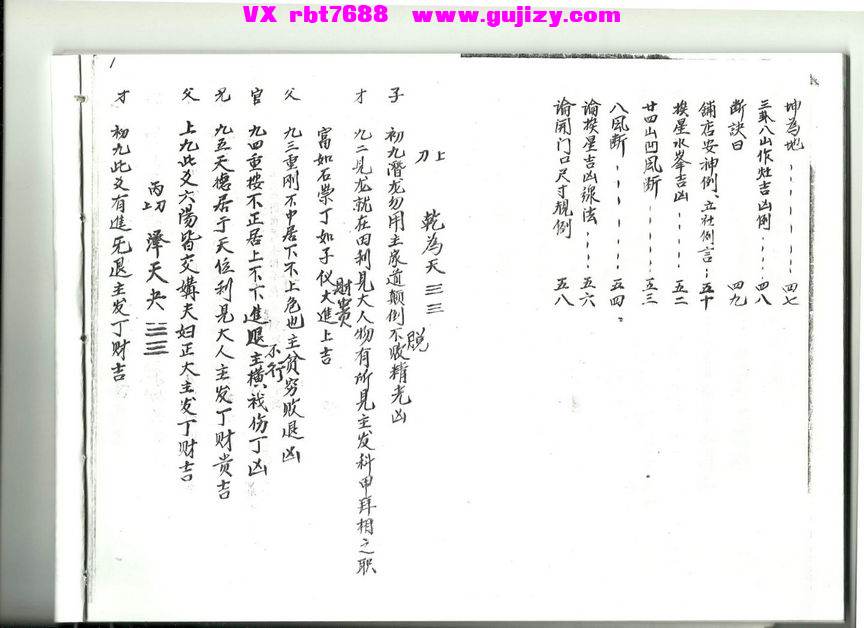 VX rbt7688 www.gujizy.com
坤為地 四七
三卦八山作灶吉凶例 四八
断訣曰 四九
铺店安神例、立社例言 五十
挨星水峯吉凶 五二
廿四山凹風断 五三
八風断 五四
論挨星吉凶線法 五六
論開门口尺寸規例 五八
1
上 乾為天 三三
子 初九潛龙勿用主家道颠倒不敗精光凶
脱
才 九二見龙就在田利見大人物有所見主发科甲拜相之职
财貴
富如石崇丁如子仪大進上吉
父 九三重刚不中居下不上危也主貧穷敗退凶
不行
官 九四重按不正居上不下進退主横禍伤丁凶
兄 九五天德居于天位利見大人主发丁财貴吉
父 上九此爻六陽皆交媾夫妇正大主发丁财吉
丙 澤天夬 三三
才 初九此爻有進无退主发丁财吉